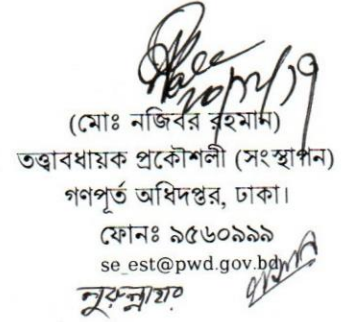 (মোঃ নজিবর রহমান)
তত্ত্বাবধায়ক প্রকৌশলী (সংস্থাপন)
গণপূর্ত অধিদপ্তর, ঢাকা।
ফোনঃ ৯৫৬০৯৯৯
se_est@pwd.gov.bd
নুরুন্নাহার